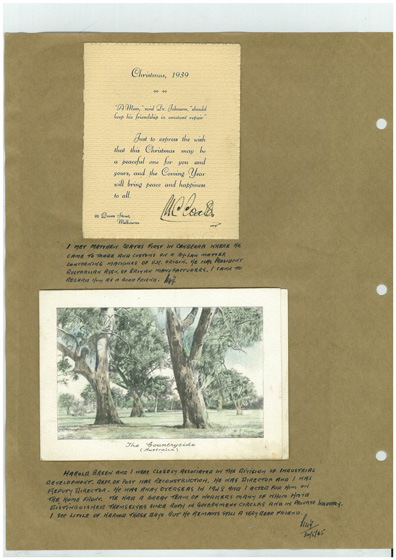 Christmas, 1939
"A Man," said Dr. Johnson, "should
keep his friendship in constant repair"
Just to express the wish
that this Christmas may be
a peaceful one for you and
yours, and the Coming Year
will bring peace and happiness
to all.
Queen Street,
Melbourne
I met first in Canberra where he
came to Trade and Customs on a By-law matter
concerning machines of U.K. origin. He was President
Australian Assn. of British Manufacturers. I came to
regard him as a good friend.
The Countryside
(Australia)
Harold Breen and I were closely associated in the Division of Industrial
Development, Dept. of Post War Reconstruction. He was Director and I was
Deputy Director. He was away overseas in 1948 and I acted for him on
the home front. We had a great team of workers many of whom have
distinguished themselves since both in Government circles and in private industry.
I see little of Harold these days but he remains still a very dear friend.